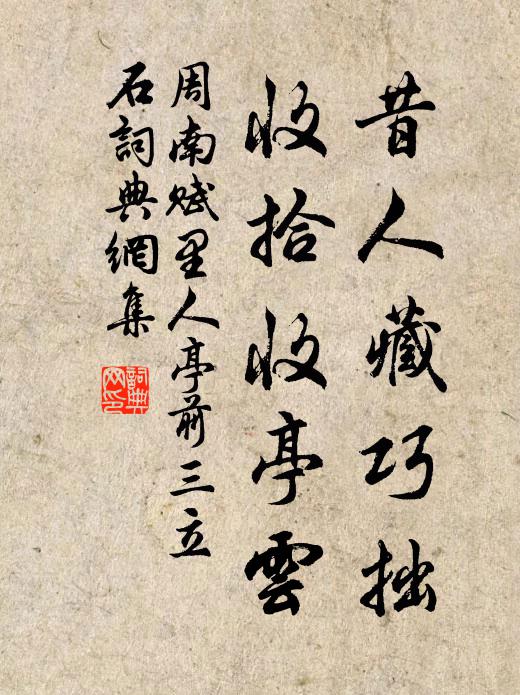 昔人藏巧拙
收拾收亭雲
周南賦里人亭前三立
石詞典網集
詞典
网印